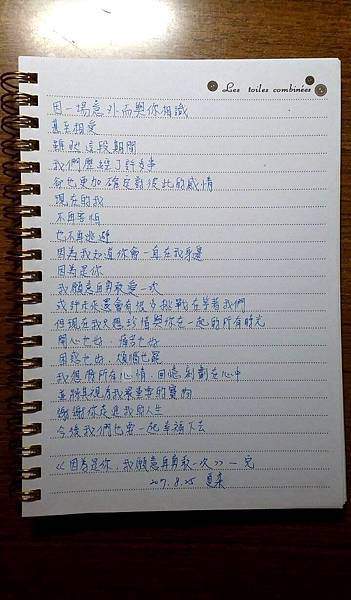 Les toiles combinées
因一場意外而與你相識
甚至相愛
雖然這段期間
我們歷經了許多事
卻也更加確定對彼此的感情
現在的我
不再害怕
也不再逃避
因為我知道你會一直在我身邊
因為是你
我願意再勇敢愛一次
或許未來還會有很多挑戰在等著我們
但現在我只想珍惜與你在一起的所有時光
開心也好,痛苦也好
困惑也好,煩惱也罷
我想將所有心情、回憶刻劃在心中
並將其視為我最重要的寶物
謝謝你走進我的人生
今後我們也要一起幸福下去
<<因為是你,我願意再勇敢一次>>—完
2017.8.25